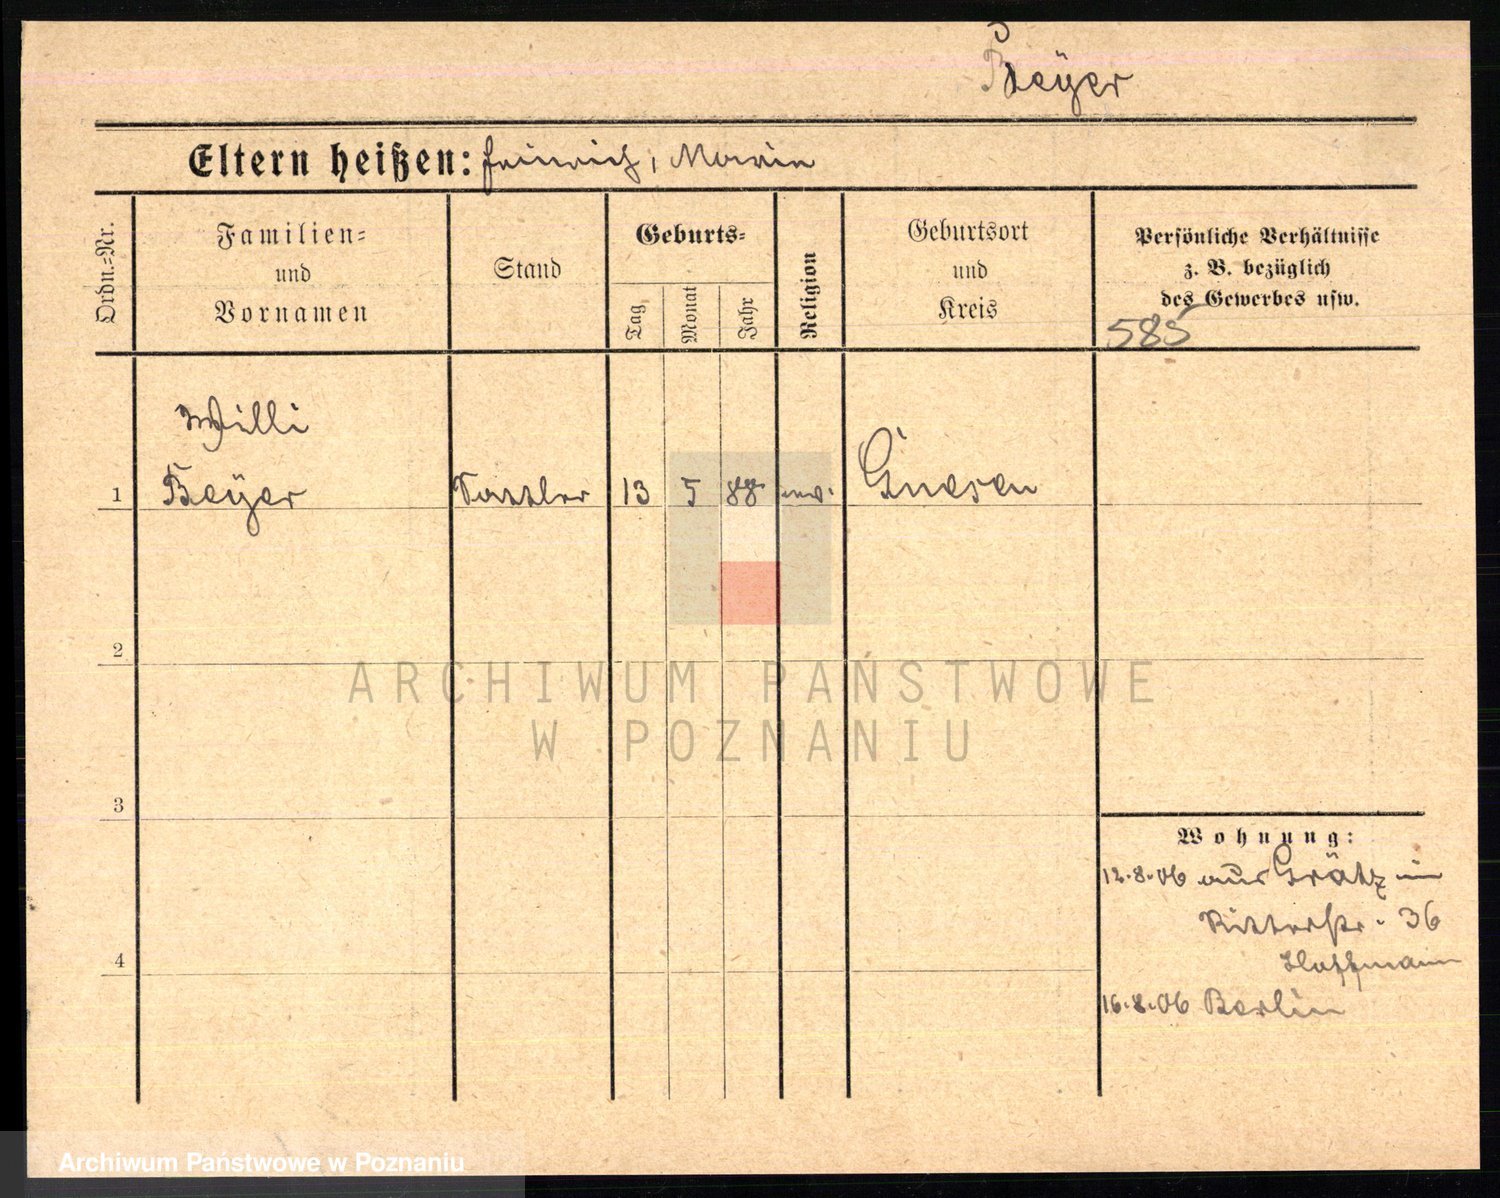 Beyer
Eltern heißen: Heinrich, Maria
Ordn.-Nr.
Familien- und Vornamen
Stand
Geburts-
Tag
Monat
Jahr
Religion
Geburtsort und Kreis
Persönliche Verhältnisse
z. B. bezüglich
des Gewerbes usw.
585
Willi
1 Beyer Sattler 13 5 88 ev. Gnesen
2
ARCHIWUM PAŃSTWOWE
W POZNANIU
3
Wohnung:
12.8.06 aus Grätz in
Ritterstr. 36
Hoffmann
4
16.8.06 Berlin
Archiwum Państwowe w Poznaniu